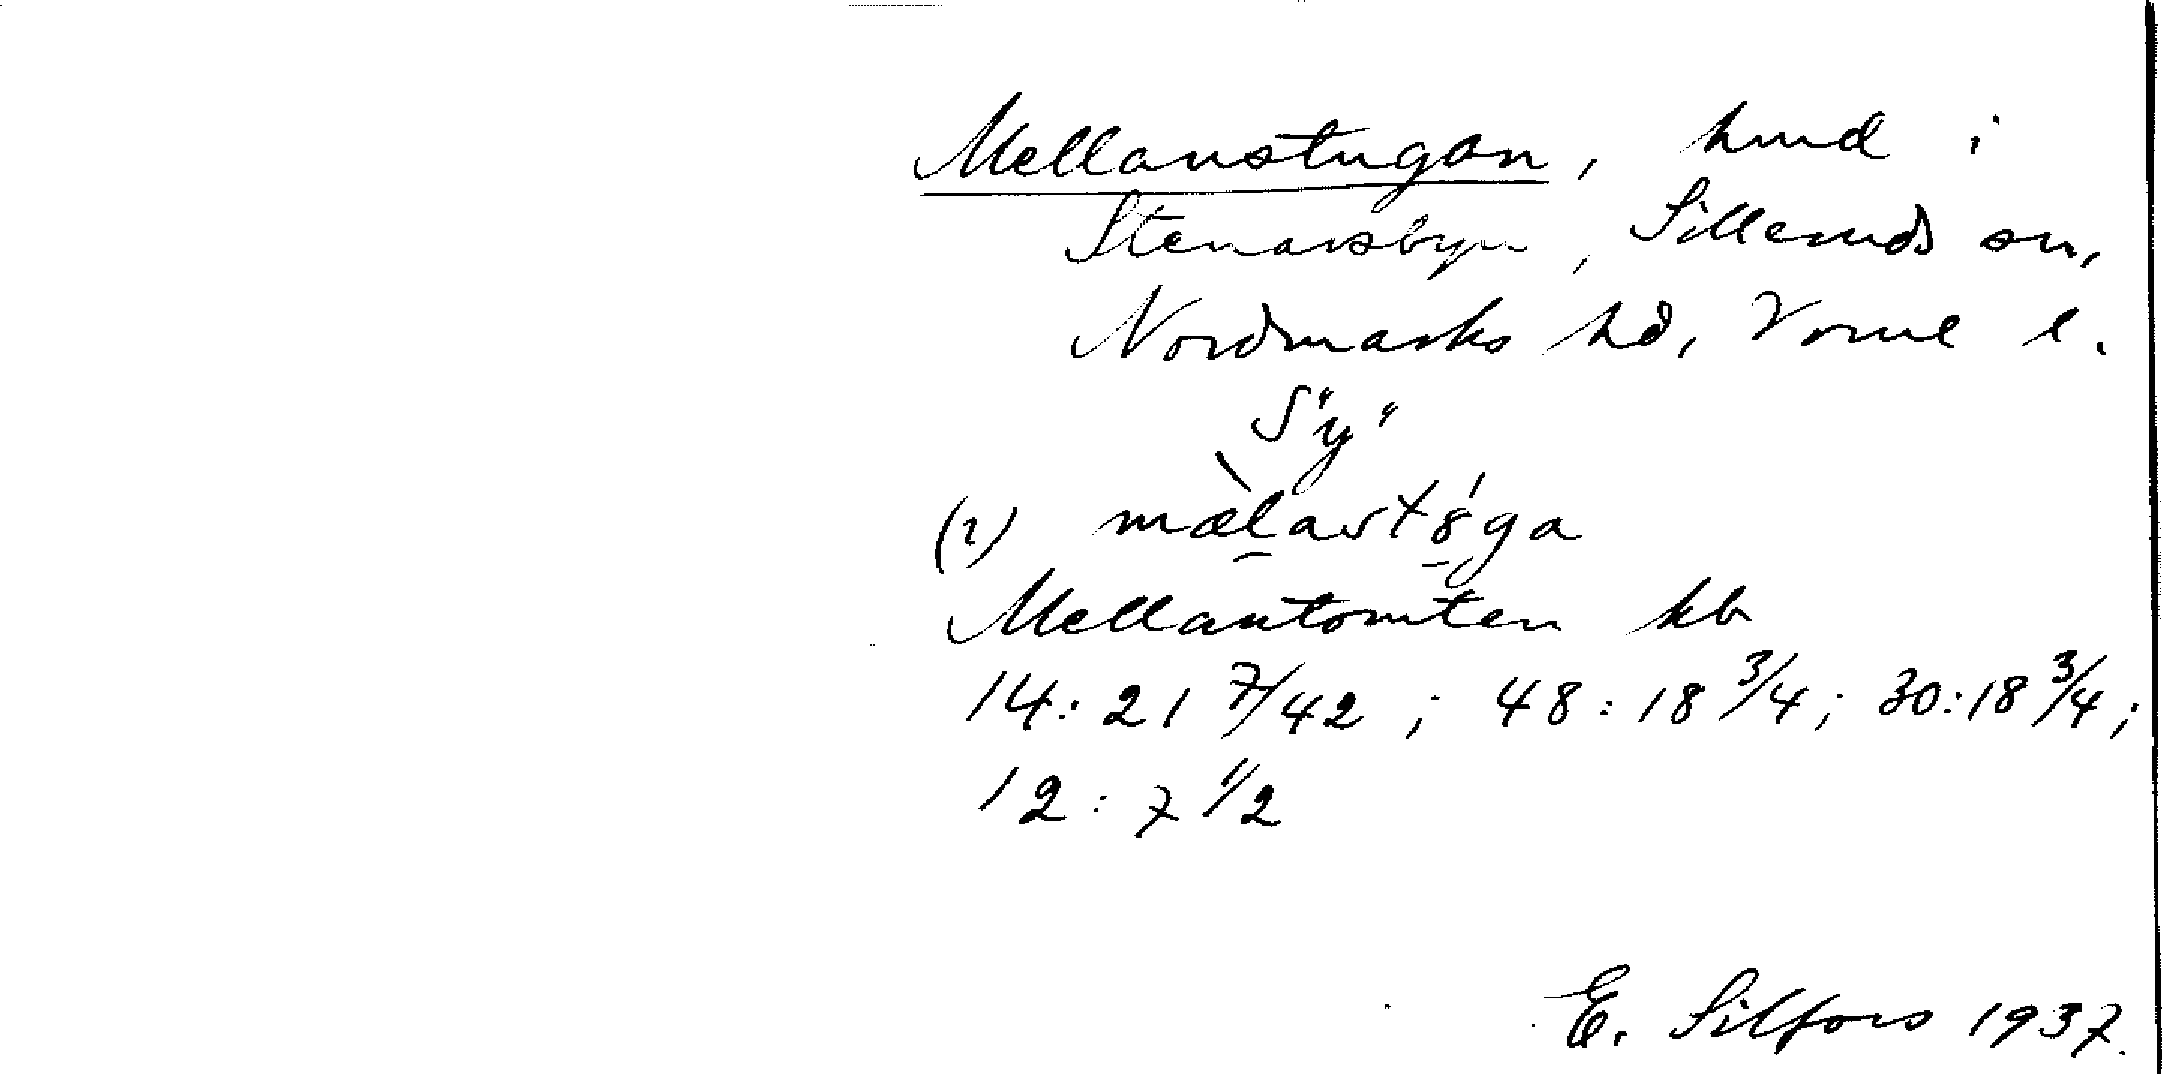 Mellanstugan, hmd i
Stenarsbyn, Silleruds sn,
Nordmarks hd, Vrml l.
S "y"
(1) mælast8́ga
Mellantomten kb
14:21 7/42 ; 48:18 3/4; 30:18 3/4;
12:7 1/2
E. Silfors 1937.